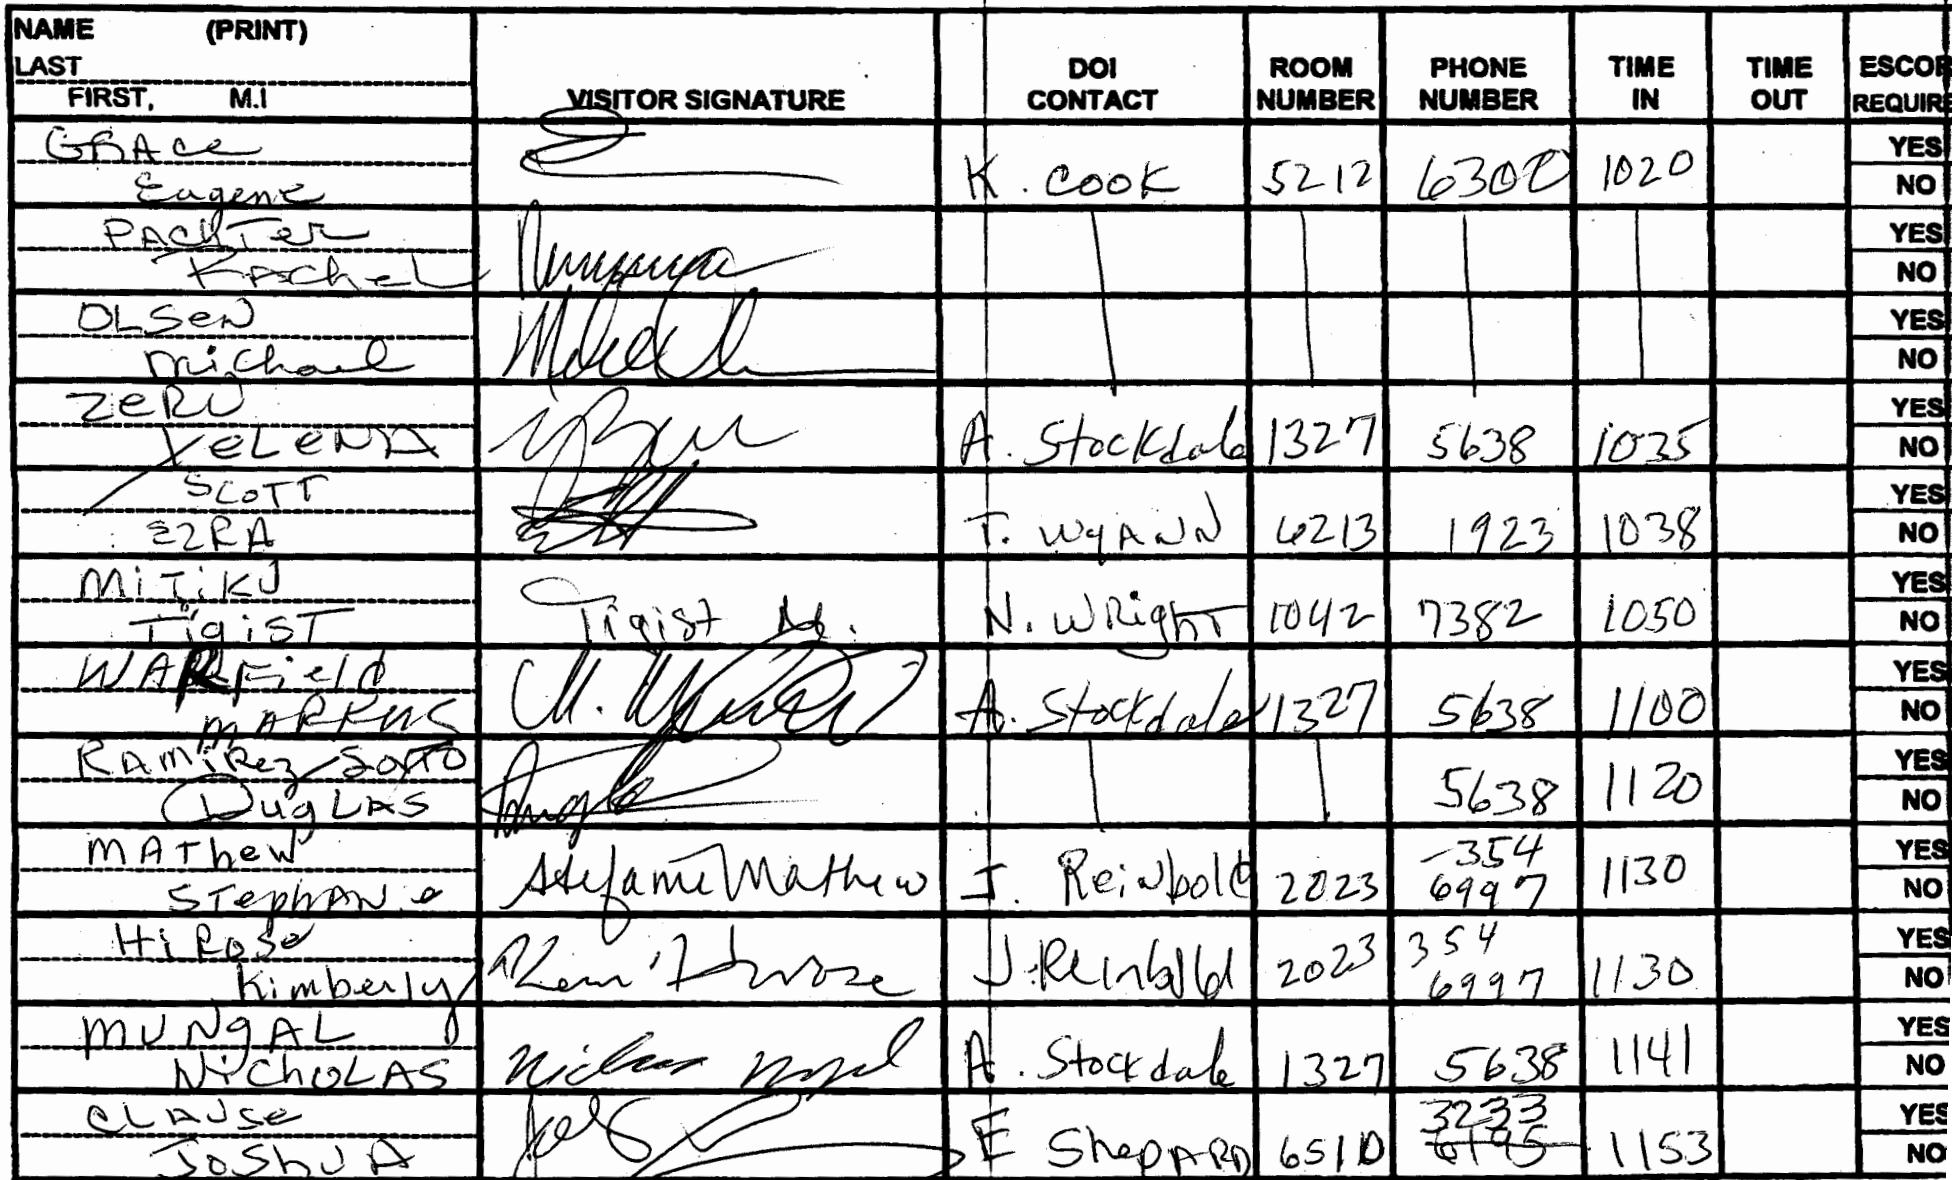 NAME (PRINT)
LAST
FIRST, M.I
VISITOR SIGNATURE
DOI CONTACT
ROOM NUMBER
PHONE NUMBER
TIME IN
TIME OUT
ESCOR
REQUIRE
GRACE
Eugene
K. COOK 5212 6300 1020
YES
NO
PACHTER
RACHEL
YES
NO
OLSEN
Michael
YES
NO
ZERU
YELENA
A. Stockdale 1327 5638 1035
YES
NO
SCOTT
EZRA
T. WYANN 6213 1923 1038
YES
NO
MITIKU
TIGIST
Tigist M.
N. WRIGHT 1042 7382 1050
YES
NO
WARFIELD
MARKUS
A. Stockdale 1327 5638 1100
YES
NO
RAMIREZ-SORTO
DUGLAS
5638 1120
YES
NO
MATHEW
STEPHANIE
Stefanie Mathew
J. Reinbold 2023 -354 6997 1130
YES
NO
HIROSE
Kimberly
J. Reinbold 2023 354 6997 1130
YES
NO
MUNGAL
NICHOLAS
A. Stockdale 1327 5638 1141
YES
NO
CLAUSE
JOSHUA
E SHEPPARD 6510 3233 6195 1153
YES
NO